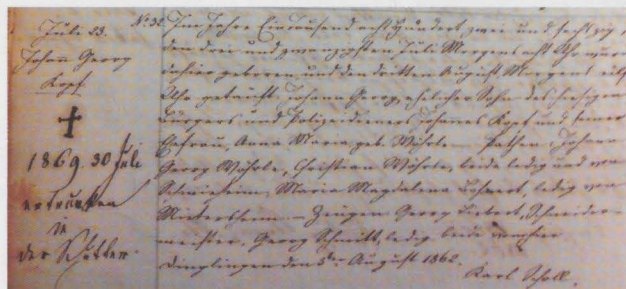 Juli 23.
Johann Georg
Kopf.
✝
1869. 30 Juli
ertrunken
in
der Schutter.
№ 32. Im Jahre Eintausend acht hundert zwei und sechzig,
den drei und zwanzigsten Juli Morgens acht Uhr wurde
dahier geboren und den dritten August Morgens
Uhr getauft Johann Georg, ehelicher Sohn des hiesigen
Bürgers und Polizeidieners Johannes Kopf und seiner
Ehefrau, Anna Maria geb. Wöhrle. Pathen: Johann
Georg Wöhrle, Christian Wöhrle, beide ledig und von
Maria Magdalena ledig von
Mietersheim. – Zeugen Georg Schneider-
meister, Georg Schmitt, ledig beide von hier
Dinglingen den 3ten August 1862.
Karl Scholl.